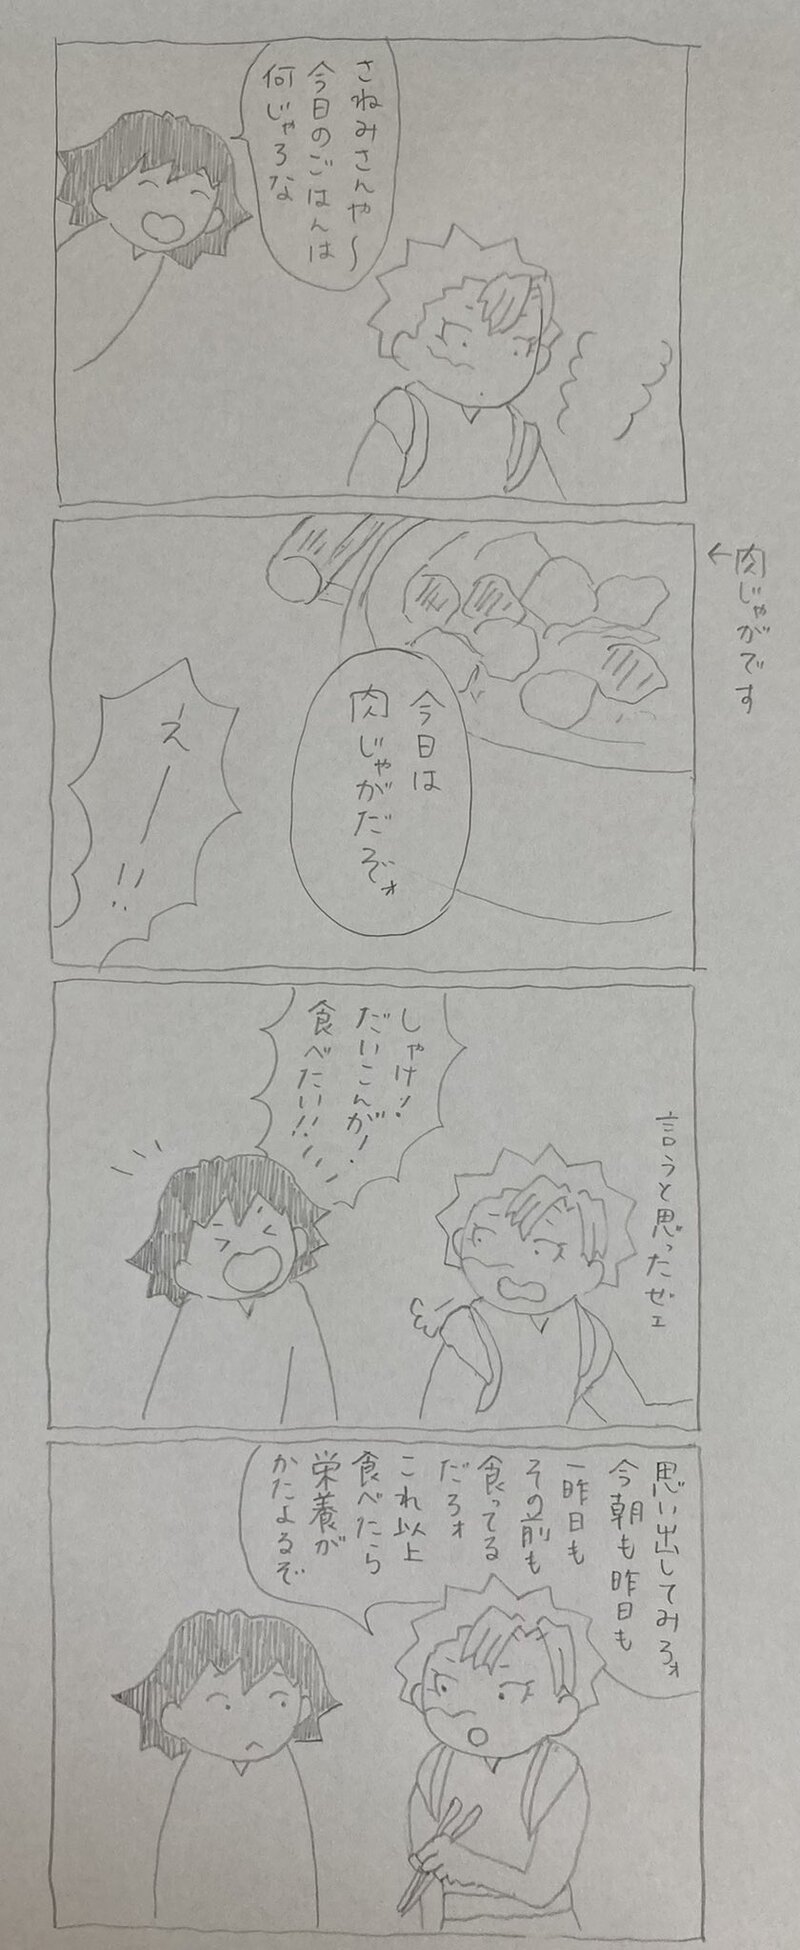 さねみさんや〜
今日のごはんは
何じゃろな
←肉じゃがです
今日は
肉じゃがだぞォ
えー!!
しゃけ!
だいこんが!
食べたい!!
言うと思ったぜェ
思い出してみろォ
今朝も昨日も
一昨日も
その前も
食ってる
だろォ
これ以上
食べたら
栄養が
かたよるぞ